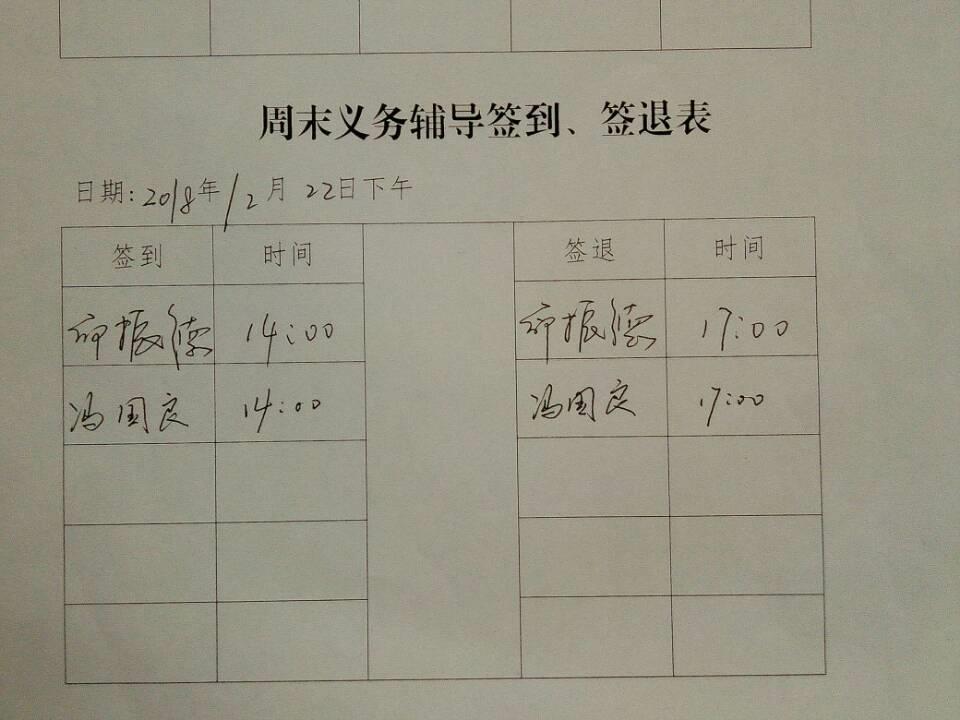 周末义务辅导签到、签退表
日期:2018年12月22日下午
签到 时间 签退 时间
振德 14:00 振德 17:00
冯国良 14:00 冯国良 17:00